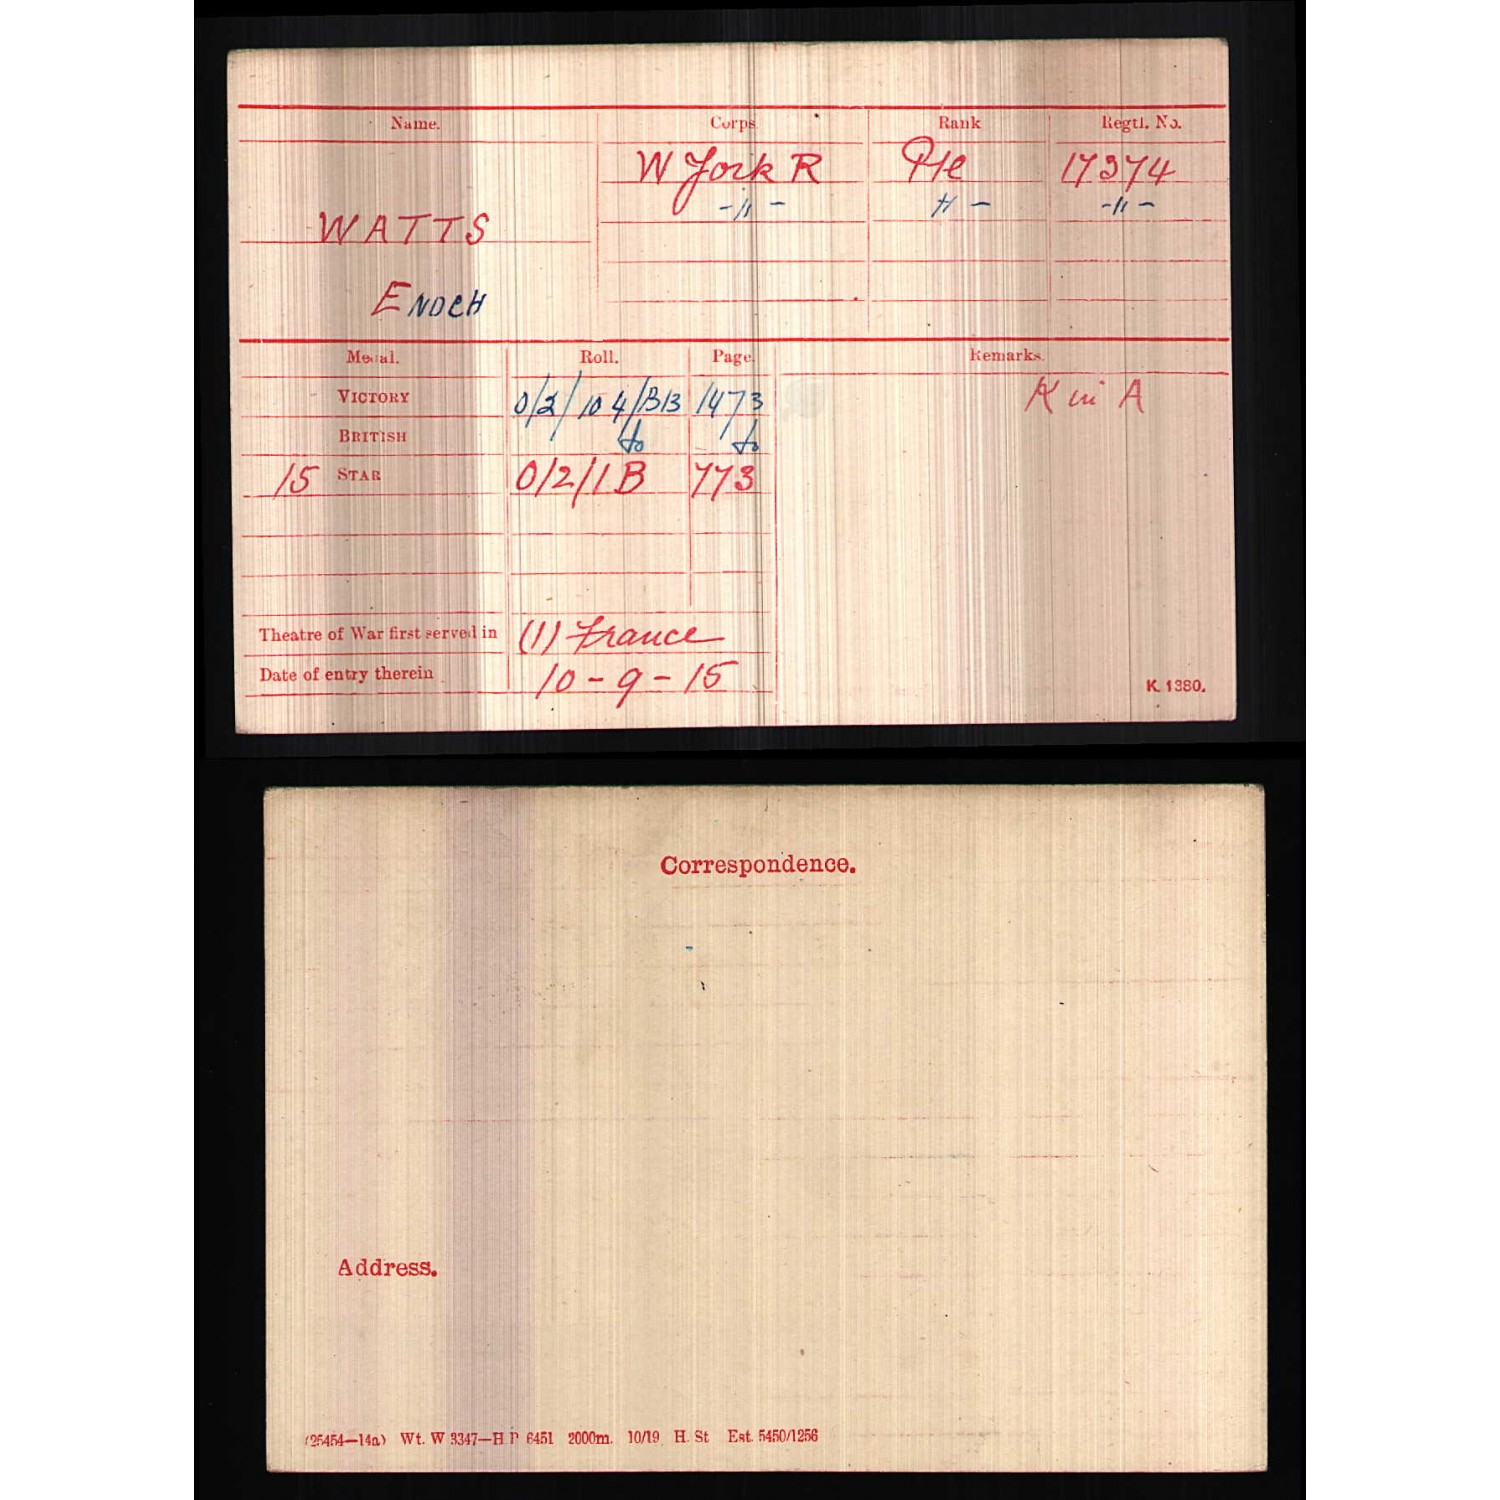 Name. Corps Rank Regtl. No.
W York R Pte 17374
-"- "- -"-
WATTS
ENOCH
Medal. Roll. Page. Remarks.
VICTORY 0/2/104/B13 1473 K in A
BRITISH do do
15 STAR 0/2/1B 773
Theatre of War first served in (1) France
Date of entry therein 10-9-15
K. 1380.
Correspondence.
Address.
(25454—14a) Wt. W 3347—H P 6451 2000m. 10/19 H. St Est. 5450/1256